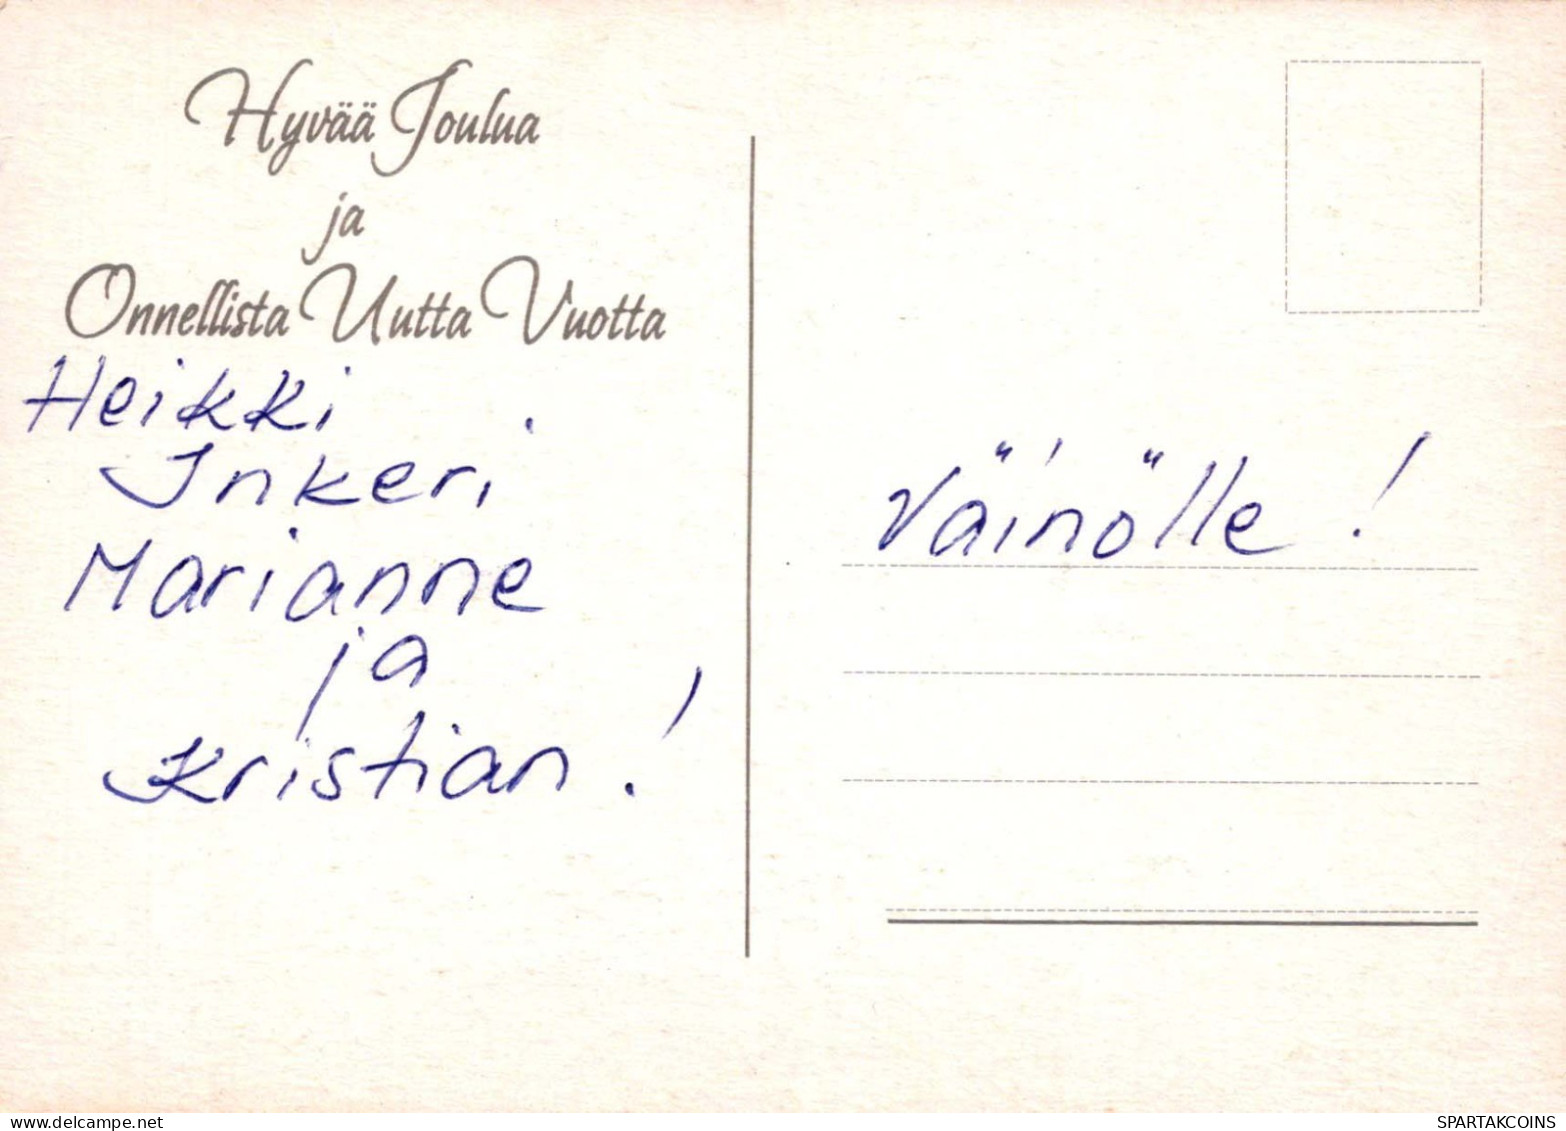 Hyvää Joulua
ja
Onnellista Uutta Vuotta
Heikki
Inkeri
Marianne
ja
Kristian!
Väinölle!
www.delcampe.net
SPARTAKCOINS